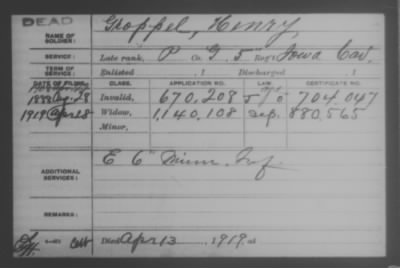 DEAD
NAME OF SOLDIER: Groppel, Henry
SERVICE: Late rank, P Co. G, 5" Reg't Iowa Cav.
TERM OF SERVICE: Enlisted , 1 Discharged , 1
DATE OF FILING. CLASS. APPLICATION NO. LAW. CERTIFICATE NO.
1888 Aug. 28 Invalid, 670,208 704,047
1919 Apr 28 Widow, 1,140,108 Sep. 880,565
Minor,
ADDITIONAL SERVICES: E 6" Minn. Inf.
REMARKS:
Died Apr 13 1919, at